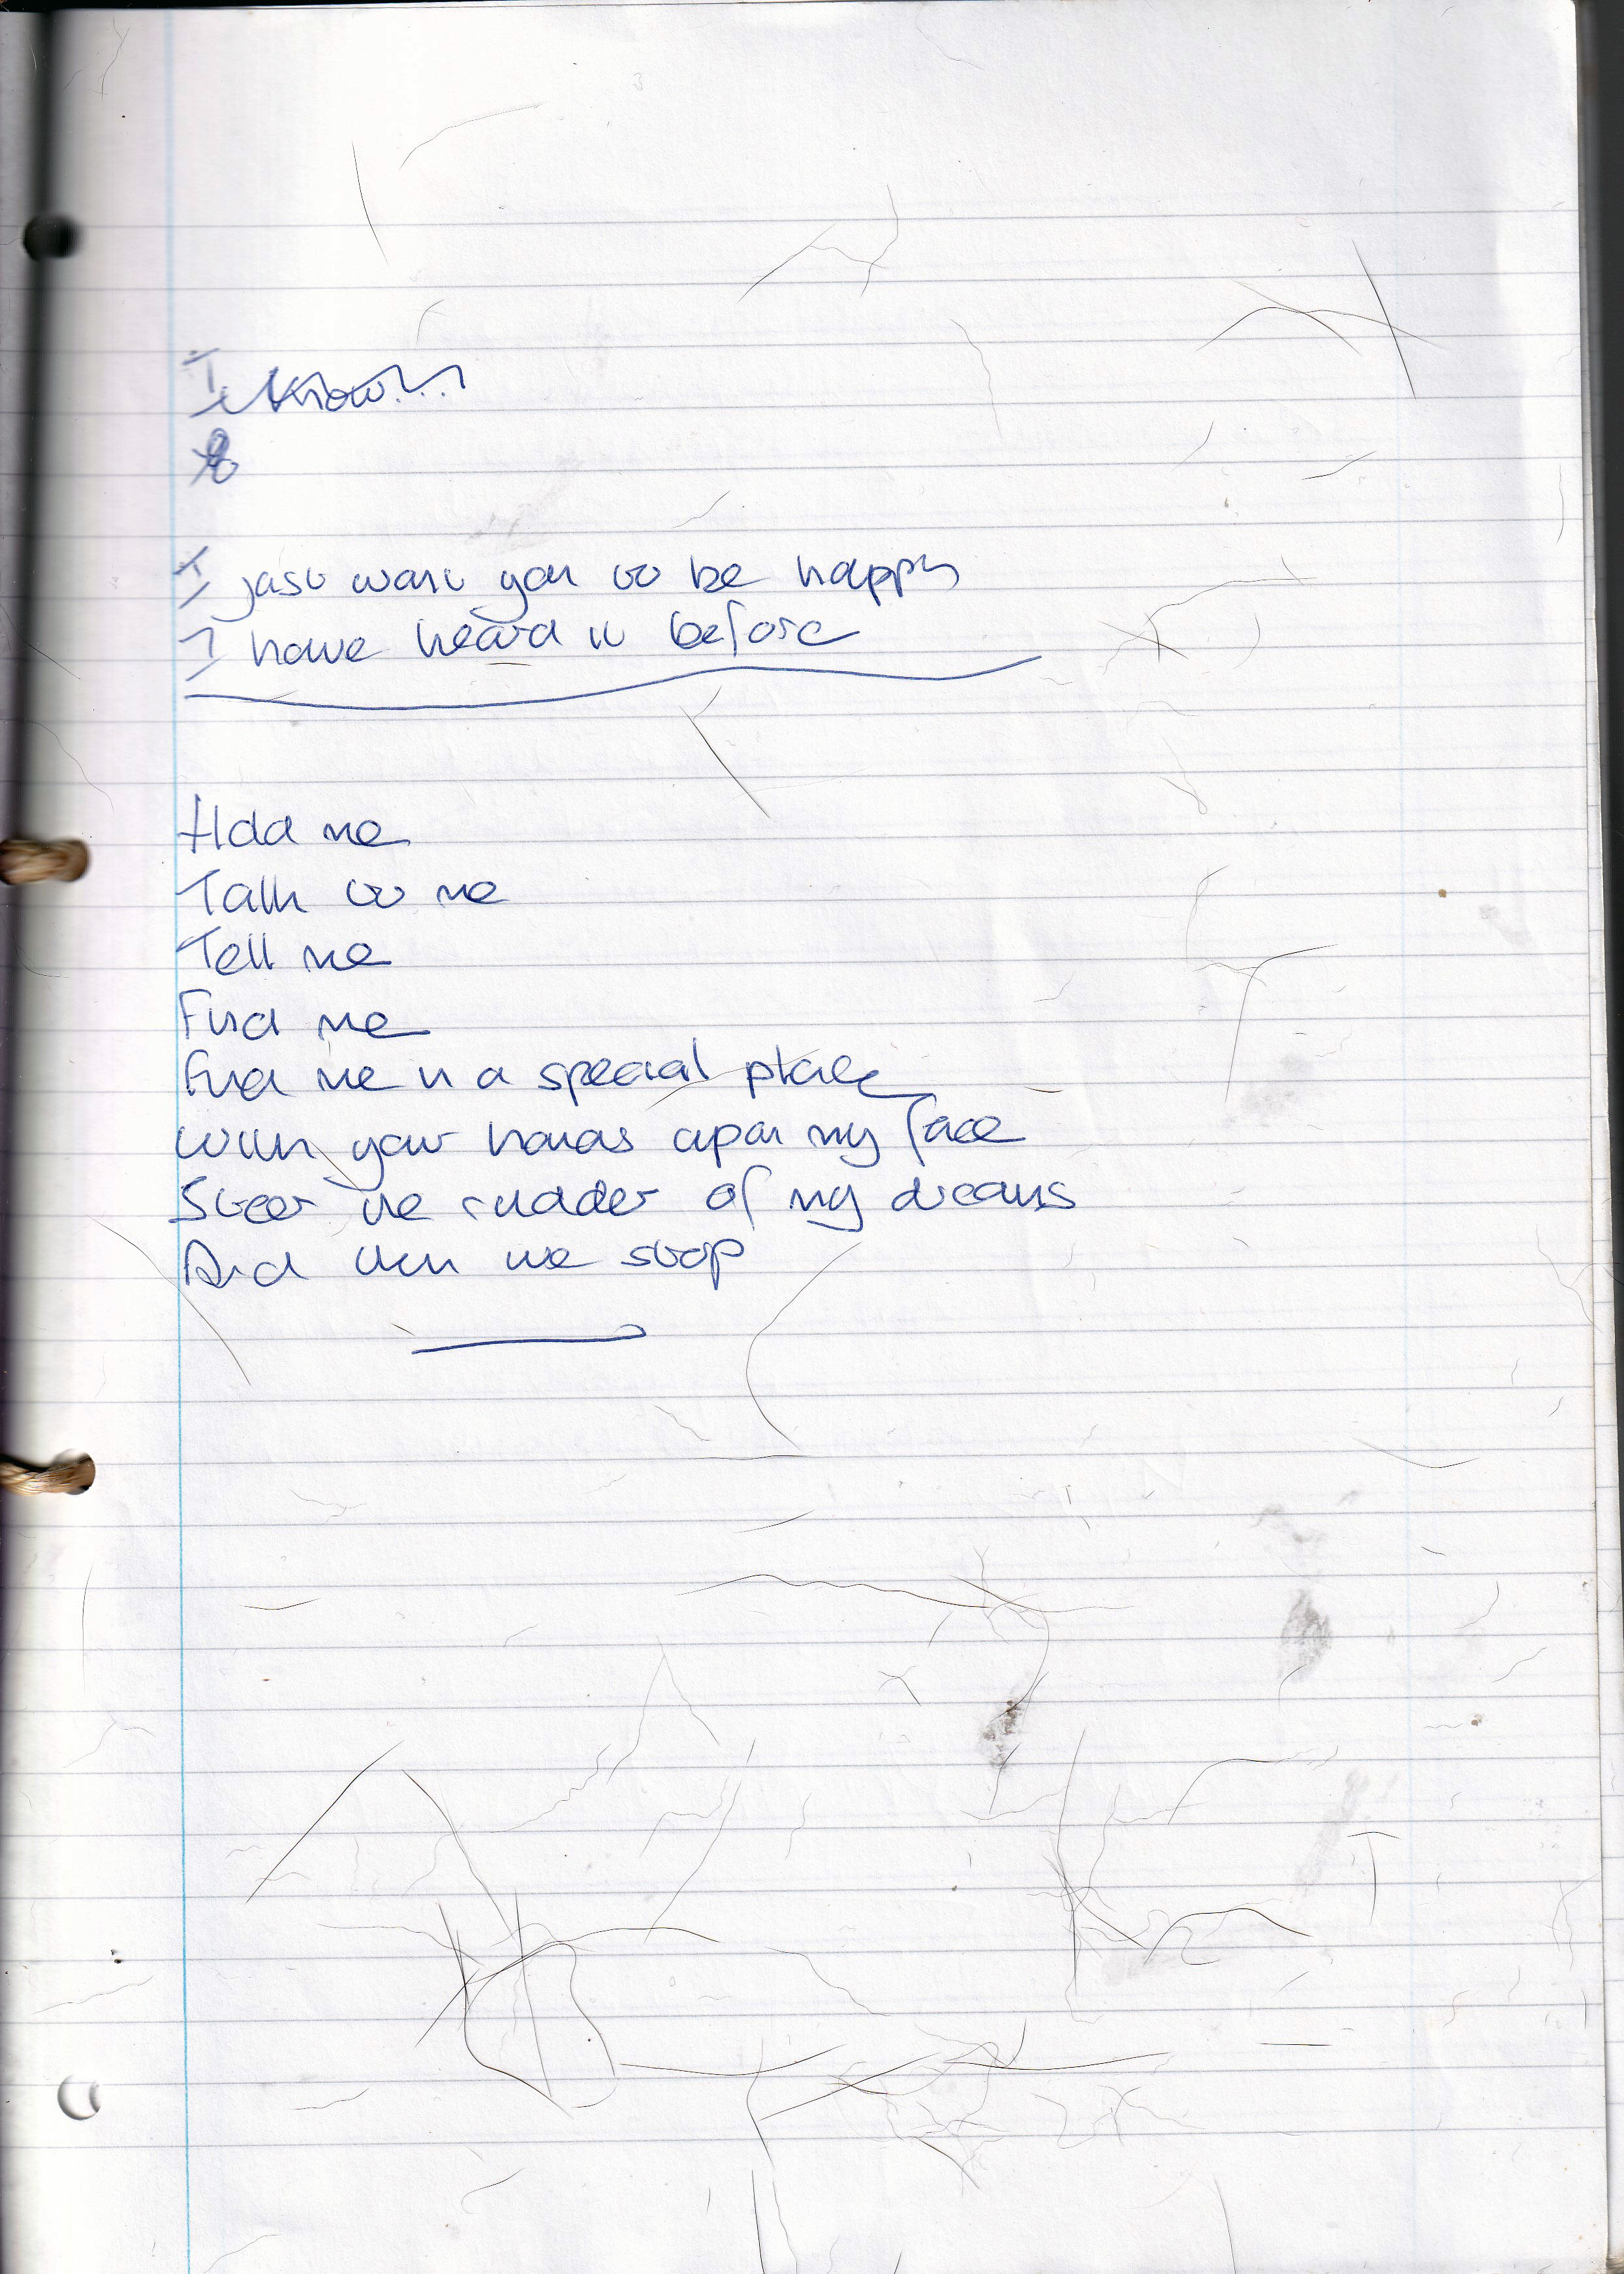 I know...
I just want you to be happy
I have heard it before
Hold me
Talk to me
Tell me
Find me
Find me in a special place
With your hands upon my face
Steer the rudder of my dreams
And then we stop